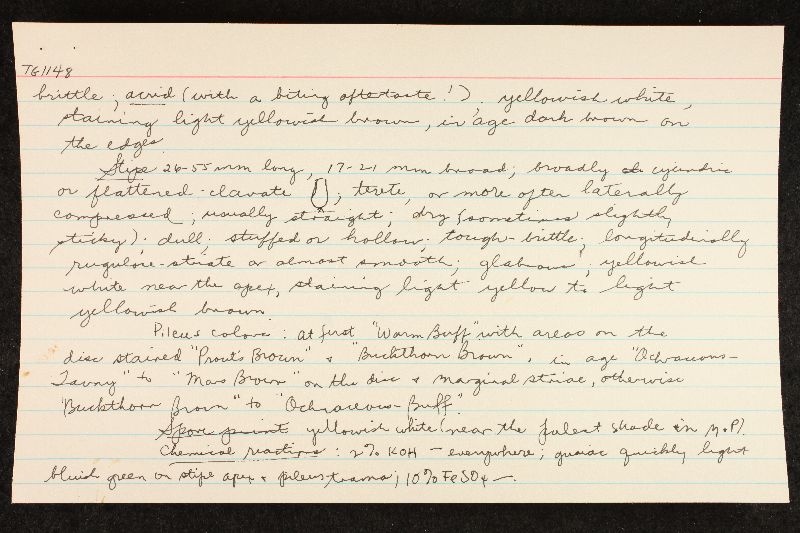 TG1148
brittle; acrid (with a biting aftertaste!), yellowish white,
staining light yellowish brown, in age dark brown on
the edges.
Stipe 26-55 mm long, 17-21 mm broad; broadly cylindric
or flattened-clavate ; terete, or more often laterally
compressed; usually straight; dry (sometimes slightly
sticky); dull; stuffed or hollow; tough-brittle; longitudinally
rugulose-striate or almost smooth; glabrous; yellowish
white near the apex, staining light yellow to light
yellowish brown.
Pileus colors: at first "Warm Buff" with areas on the
disc stained "Prout's Brown" & "Buckthorn Brown", in age "Ochraceous-
Tawny" to "Mars Brown" on the disc & marginal striae, otherwise
"Buckthorn Brown" to "Ochraceous-Buff".
Spore print yellowish white (near the palest shade in M.&P.).
Chemical reactions: 2% KOH - everywhere; guaiac quickly light
bluish green on stipe apex & pileus trama; 10% FeSO4 -.